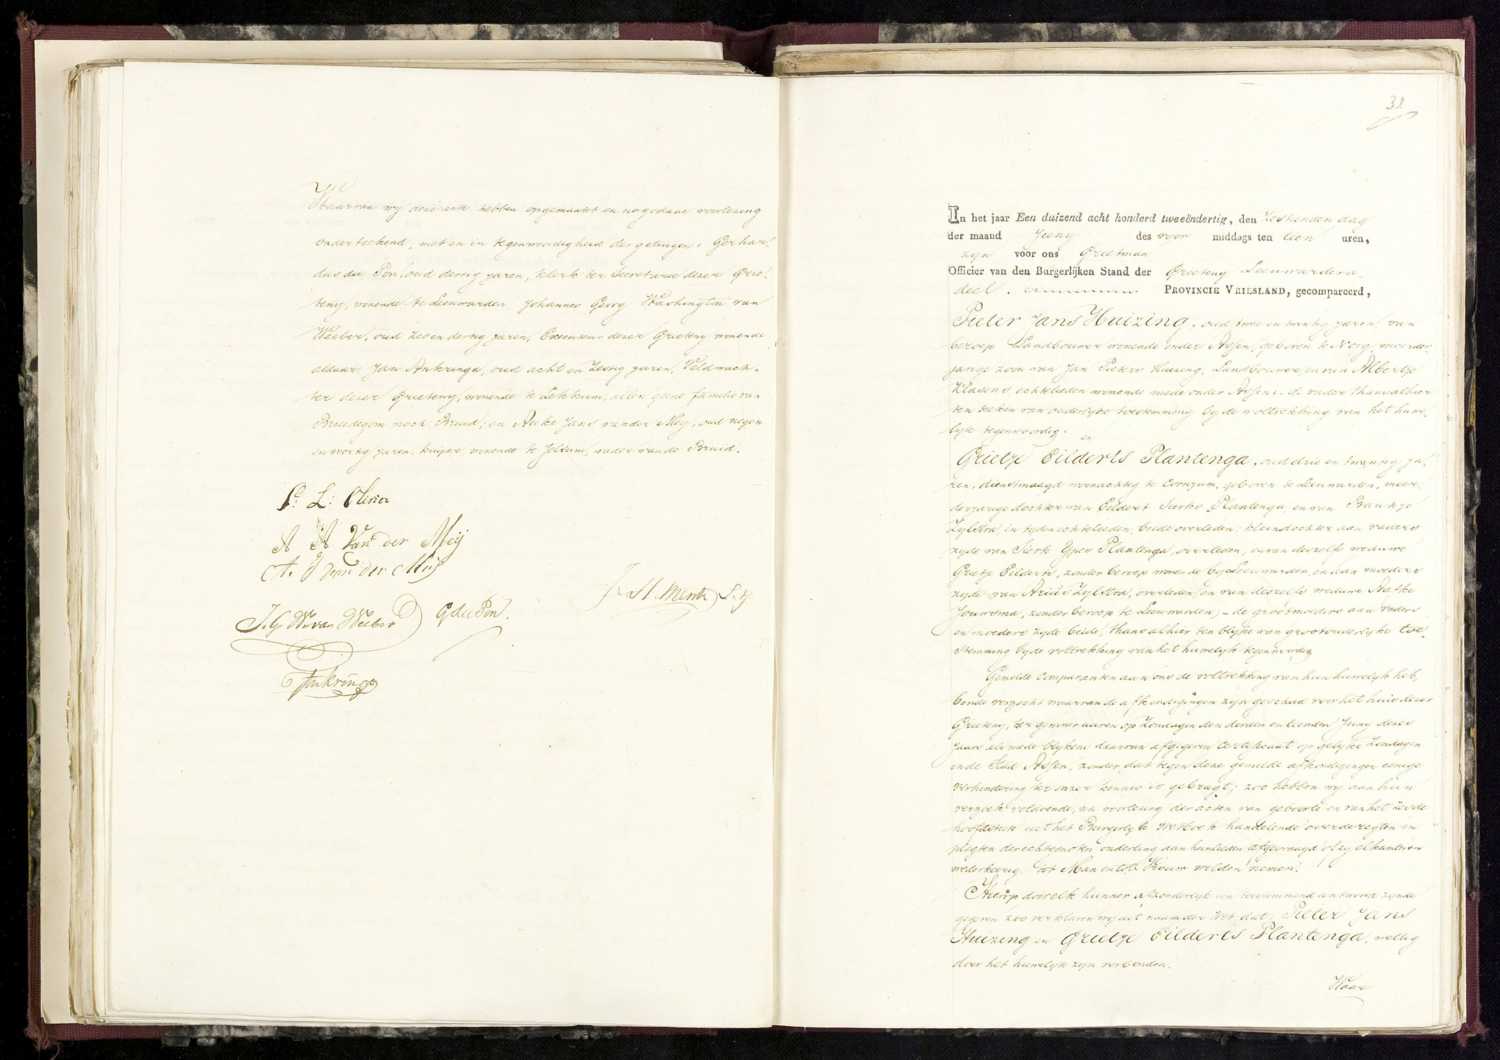 Waarvan wy deze acte hebben opgemaakt en na gedane voorlezing
onderteekend, met en in tegenwoordigheid der getuigen: Gerhar-
dus du Pon, oud dertig jaren, klerk ter Secretarie dezer Griet-
teny, wonende te Leeuwarden, Johannes Georg Washington van
Weeber, oud zeven dertig jaren, dezer Grieteny wonende
aldaar, Jan Ankringa, oud acht en zestig jaren, Veldwach-
ter dezer Grieteny, wonende te Lekkum, allen geene familie van
Bruidegom noch Bruid, en Anke Jans van der Mey, oud negen
en veertig jaren, kuiper, wonende te Jelsum, vader van de Bruid.
P: L: Olivier
A A Van der Meij
A. J van der Meij
J. G. W. van Weeber G du Pon.
J. M. Mentz
Ankringa
31
In het jaar Een duizend acht honderd tweeëndertig, den zestienden dag
der maand Juny des voor middags ten tien uren,
zyn voor ons Grietman
Officier van den Burgerlijken Stand der Grieteny Leeuwardera-
deel. PROVINCIE VRIESLAND, gecompareerd,
Pieter Jans Huizing, oud twee en twintig jaren, van
beroep Landbouwer wonende onder Assen, geboren te Norg, meerder-
jarige zoon van Jan Pieters Huizing, Landbouwer, en van Albertje
Klasens, echtelieden wonende mede onder Assen; de vader thans alhier
ten teeken van ouderlyke toestemming by de voltrekking van het huwe-
lyk tegenwoordig.
en
Grietje Eilderts Plantenga, oud drie en twintig ja-
ren, dienstmaagd woonachtig te Cornjum, geboren te Leeuwarden, meer-
derjarige dochter van Eildert Sierks Plantenga en van Braukje
Zylstra, in leden echtelieden, beide overleden; kleindochter aan vaders
zyde van Sierk Ypes Plantenga, overleden, en van deszelfs weduwe
Grietje Eilderts, zonder beroep wonende by Leeuwarden, en aan moeders
zyde van Arius Zylstra, overleden, en van deszelfs weduwe Aafke
Jouwsma, zonder beroep te Leeuwarden; de grootmoeders aan vaders
en moeders zyde beide, thans alhier ten blyke van grootouderlyke toe-
stemming by de voltrekking van het huwelyk tegenwoordig
Gemelde Comparanten aan ons de voltrekking van hun huwelyk heb-
bende verzocht waarvan de afkondigingen zyn geschied voor het huis dezer
Grieteny, ter gewone uren op Zondagen den derden en tienden Juny dezes
jaars als mede blykens daarvan afgegeven Certificaat op gelyke Zondagen
in de Stad Assen, zonder dat tegen deze gemelde afkondigingen eenige
verhindering ter onzer kennis is gebragt; zoo hebben wy aan hun
verzoek voldoende, na voorlezing der acten van geboorte en van het zesde
hoofdstuk uit het Burgerlyk Wetboek handelende over de regten en
pligten der echtgenoten, onderling aan hun lieden afgevraagd of zy elkanderen
wederkeerig tot Man en tot Vrouw wilden nemen?
Hierop door elk hunner afzonderlyk een toestemmend antwoord zynde
gegeven zoo verklaren wy uit naam der Wet, dat Pieter Jans
Huizing en Grietje Eilderts Plantenga, wettig
door het huwelyk zyn verbonden.
Waar